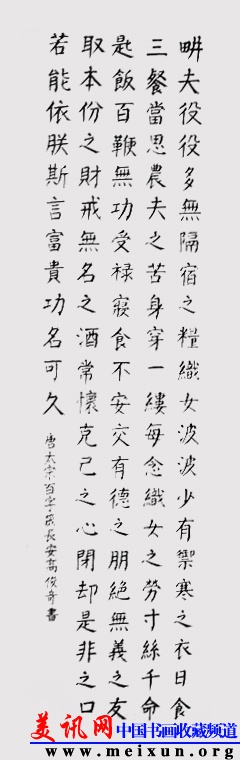 畊夫役役多無隔宿之糧織女波波少有禦寒之衣日食
三餐當思農夫之苦身穿一縷每念織女之勞寸絲千命
匙飯百鞭無功受禄寢食不安交有德之朋絕無義之友
取本份之財戒無名之酒常懷克己之心閉却是非之口
若能依朕斯言富貴功名可久
唐太宗百字箴長安高俊奇書
美讯网中国书画收藏频道
www.meixun.org